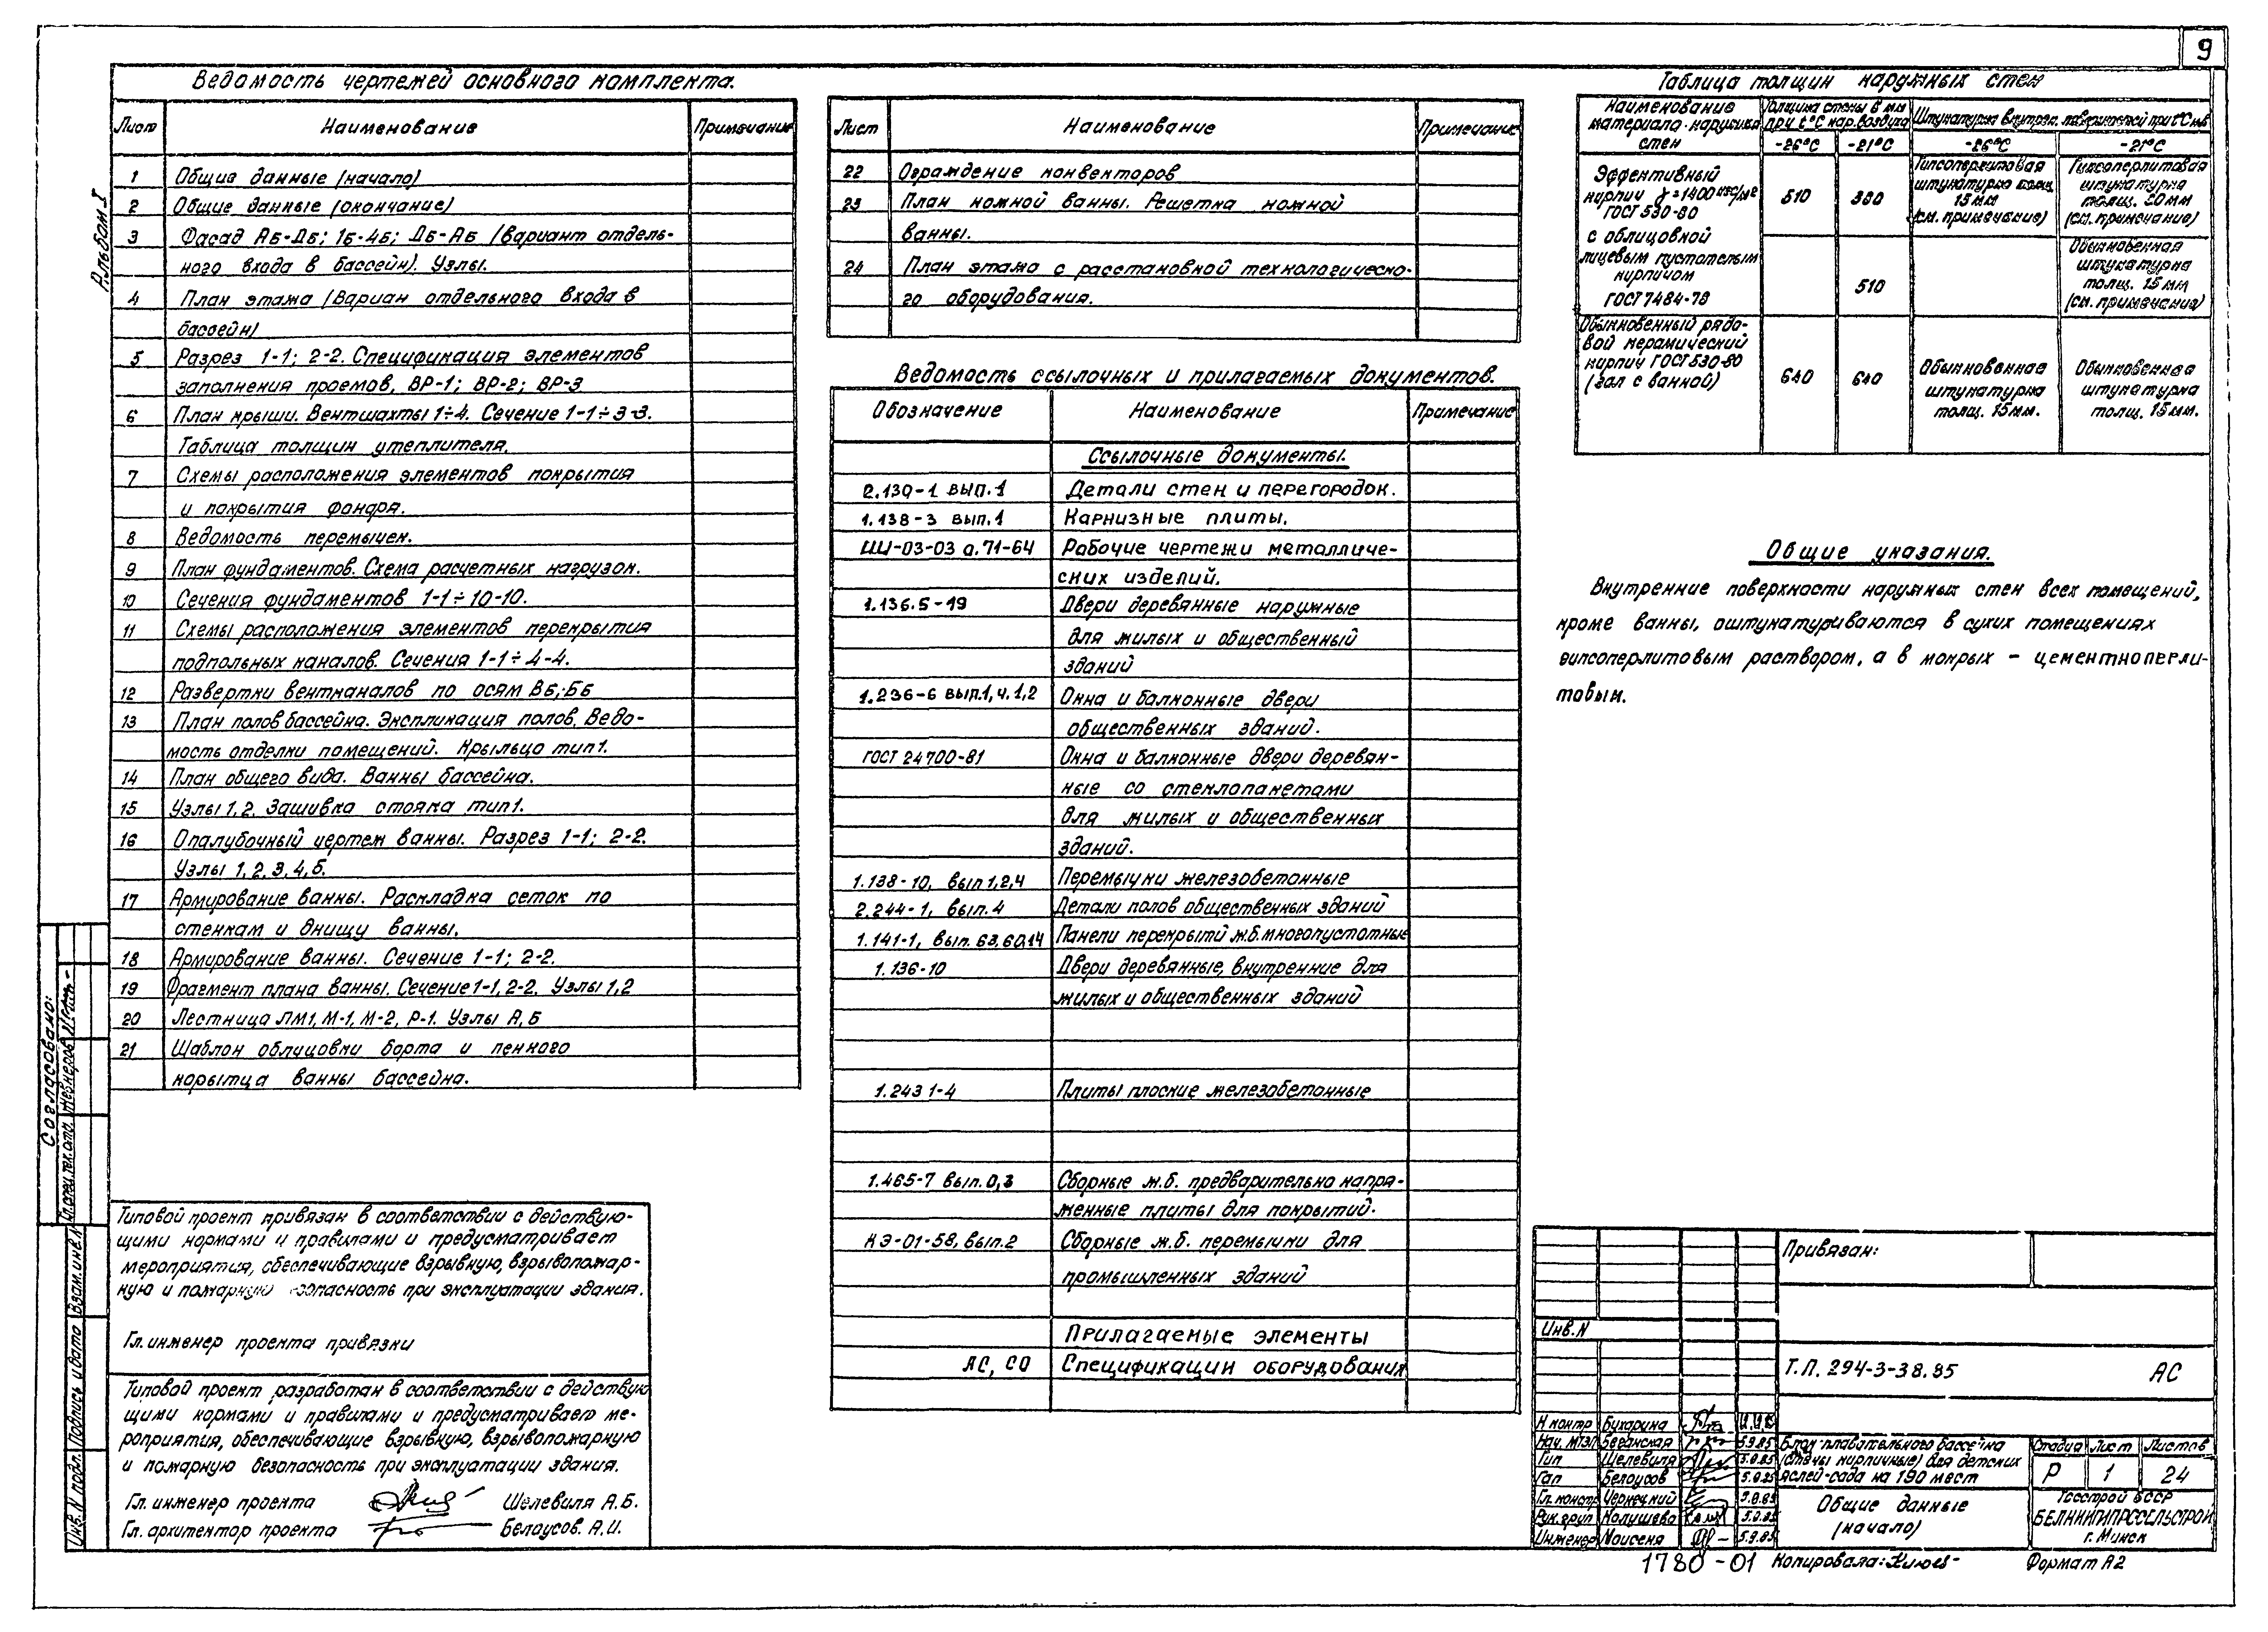 9
Альбом I
Ведомость чертежей основного комплекта.
Лист Наименование Примечание
1 Общие данные (начало)
2 Общие данные (окончание)
3 Фасад АБ-ДБ; 1Б-4Б; ДБ-АБ (вариант отдель-
ного входа в бассейн). Узлы.
4 План этажа (Вариан отдельного входа в
бассейн)
5 Разрез 1-1; 2-2. Спецификация элементов
заполнения проемов, ВР-1; ВР-2; ВР-3
6 План крыши. Вентшахты 1÷4. Сечение 1-1÷3-3.
Таблица толщин утеплителя.
7 Схемы расположения элементов покрытия
и покрытия фонаря.
8 Ведомость перемычек.
9 План фундаментов. Схема расчетных нагрузок.
10 Сечения фундаментов 1-1÷10-10.
11 Схемы расположения элементов перекрытия
подпольных каналов. Сечения 1-1÷4-4.
12 Развертки вентканалов по осям ВБ; ББ
13 План полов бассейна. Экспликация полов. Ведо-
мость отделки помещений. Крыльцо тип1.
14 План общего вида. Ванны бассейна.
15 Узлы 1,2. Зашивка стояка тип1.
16 Опалубочный чертеж ванны. Разрез 1-1; 2-2.
Узлы 1,2,3,4,5.
17 Армирование ванны. Раскладка сеток по
стенкам и днищу ванны.
18 Армирование ванны. Сечение 1-1; 2-2.
19 Фрагмент плана ванны. Сечение 1-1, 2-2. Узлы 1,2
20 Лестница ЛМ1, М-1, М-2, Р-1. Узлы А,Б
21 Шаблон облицовки борта и пенного
корытца ванны бассейна.
Лист Наименование Примечание
22 Ограждение конвекторов
23 План ножной ванны. Решетка ножной
ванны.
24 План этажа с расстановкой технологическо-
го оборудования.
Ведомость ссылочных и прилагаемых документов.
Обозначение Наименование Примечание
Ссылочные документы.
2.130-1 вып.1 Детали стен и перегородок.
1.138-3 вып.1 Карнизные плиты.
ШИ-03-03 а.71-64 Рабочие чертежи металличе-
ских изделий.
1.136.5-19 Двери деревянные наружные
для жилых и общественный
зданий
1.236-6 вып.1, ч.1,2 Окна и балконные двери
общественных зданий.
ГОСТ 24700-81 Окна и балконные двери деревян-
ные со стеклопакетами
для жилых и общественных
зданий.
1.138-10, вып 1,2,4 Перемычки железобетонные
2.244-1, вып.4 Детали полов общественных зданий
1.141-1, вып. 63,60,14 Панели перекрытий ж.б. многопустотные
1.136-10 Двери деревянные, внутренние для
жилых и общественных зданий
1.243 1-4 Плиты плоские железобетонные
1.465-7 вып.0,3 Сборные ж.б. предварительно напря-
женные плиты для покрытий.
КЭ-01-58, вып.2 Сборные ж.б. перемычки для
промышленных зданий
Прилагаемые элементы
АС, СО Спецификации оборудования
Таблица толщин наружных стен
Наименование материала наружных стен Толщина стены в мм при t°С нар. воздуха Штукатурка внутрен. поверхностей при t°С
-26°С -21°С -26°С -21°С
Эффективный
кирпич γ=1400 кг/м²
ГОСТ 530-80
с облицовкой
лицевым пустотелым
кирпичом
ГОСТ 7484-78
510 380
Гипсоперлитовая
штукатурка толщ
15мм
(см. примечание)
Гипсоперлитовая
штукатурка
толщ. 20мм
(см. примечание)
510
Обыкновенная
штукатурка
толщ. 15мм
(см. примечание)
Обыкновенный рядо-
вой керамический
кирпич ГОСТ 530-80
(зал с ванной)
640 640
Обыкновенная
штукатурка
толщ. 15мм.
Обыкновенная
штукатурка
толщ. 15мм.
Общие указания.
Внутренние поверхности наружных стен всех помещений,
кроме ванны, оштукатуриваются в сухих помещениях
гипсоперлитовым раствором, а в мокрых – цементноперли-
товым.
Согласовано:
Гл.спец.тех.отд.
Взам.инв.N
Подпись и дата
Инв.N подл.
Типовой проект привязан в соответствии с действую-
щими нормами и правилами и предусматривает
мероприятия, обеспечивающие взрывную, взрывопожар-
ную и пожарную безопасность при эксплуатации здания.
Гл. инженер проекта привязки
Типовой проект разработан в соответствии с действую
щими нормами и правилами и предусматривает ме-
роприятия, обеспечивающие взрывную, взрывопожарную
и пожарную безопасность при эксплуатации здания.
Гл. инженер проекта Шелевиля А.Б.
Гл. архитектор проекта Белоусов. А.И.
Привязан:
Инв.N
Т.П. 294-3-38.85 АС
Н контр Бухарина
Нач. МТЭП 5.9.85
Гип Шелевиля 5.9.85
Гап Белоусов 5.9.85
Гл. констр Чернецкий 5.9.85
Рук. груп Колушева 5.9.85
Инженер Моисеня 5.9.85
Блок плавательного бассейна
(стены кирпичные) для детских
яслей-сада на 190 мест
Стадия Лист Листов
Р 1 24
Общие данные
(начало)
Госстрой БССР
БЕЛНИИГИПРОСЕЛЬСТРОЙ
г. Минск
1780-01 Копировала: Формат А2